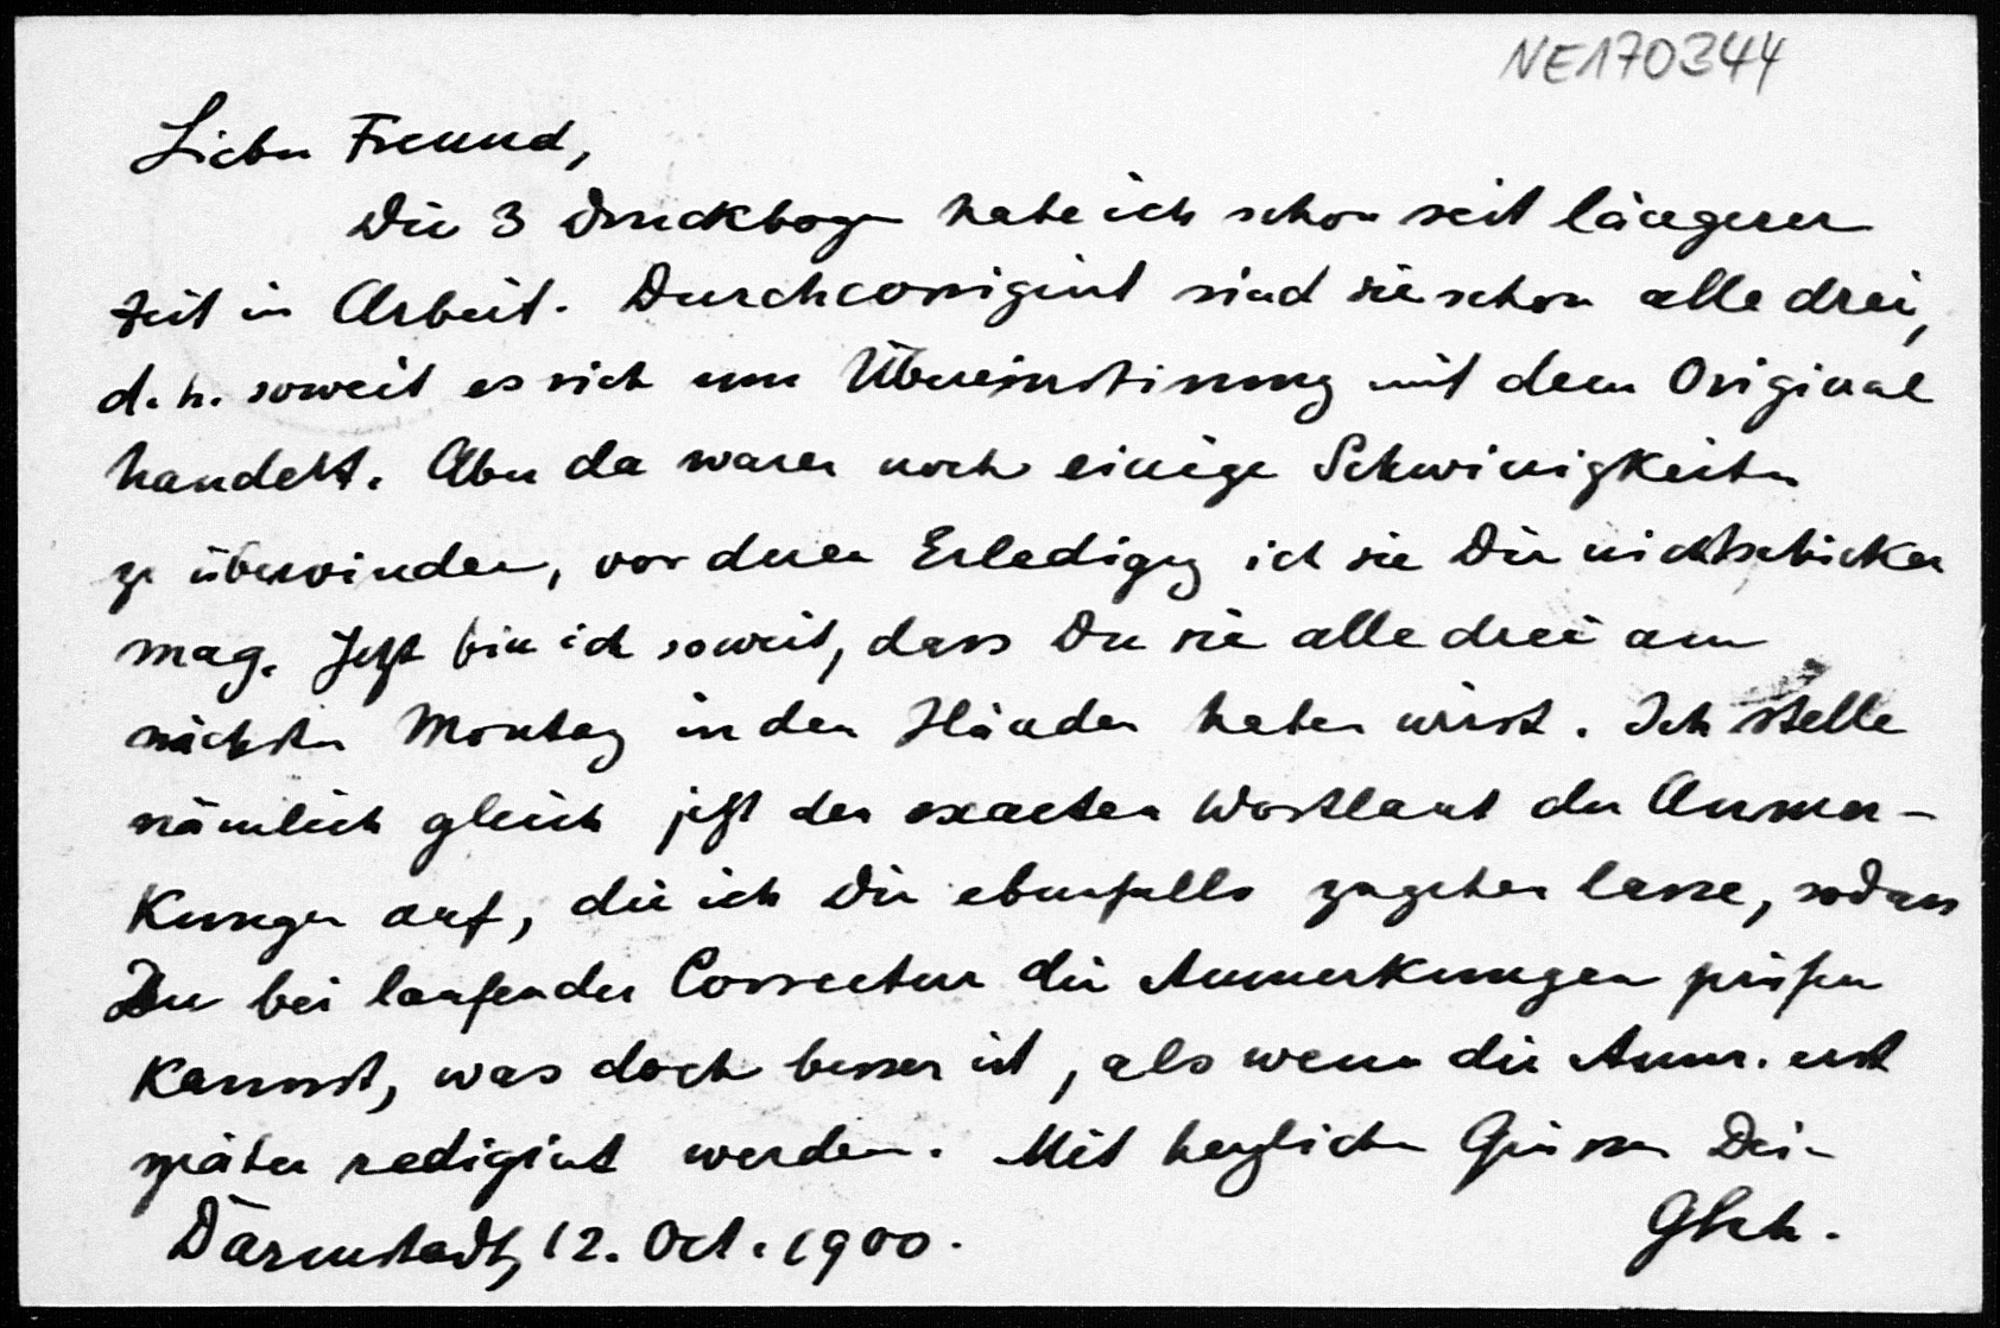 NE170344
Lieber Freund,
Die 3 Druckbogen habe ich schon seit längerer
Zeit in Arbeit. Durchcorrigirt sind sie schon alle drei,
d. h. soweit es sich um Übereinstimung mit dem Original
handelt. Aber da waren noch einige Schwierigkeiten
zu überwinden, vor deren Erledigung ich sie Dir nicht schicken
mag. Jetzt bin ich soweit, dass Du sie alle drei am
nächsten Montag in den Händen haben wirst. Ich stelle
nämlich gleich jetzt den exacten Wortlaut der Anmer-
kungen auf, die ich Dir ebenfalls zugehen lasse, sodass
Du bei laufender Correctur die Anmerkungen prüfen
kannst, was doch besser ist, als wenn die Anmr. erst
später redigirt werden. Mit herzlichen Grüssen Dein
Darmstadt, 12. Oct. 1900.